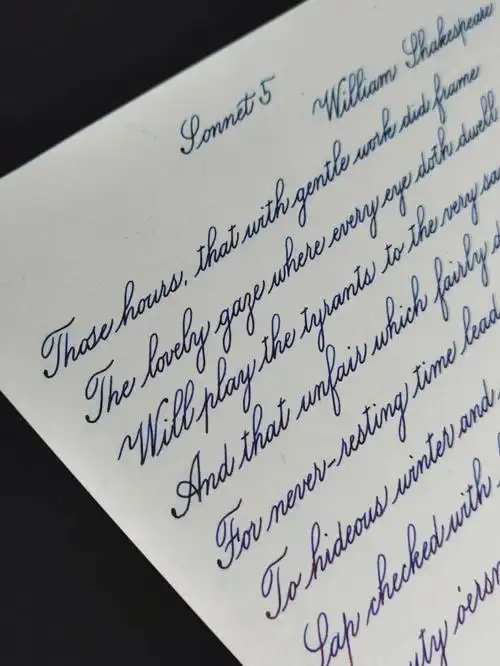 Sonnet 5 William Shakespeare
Those hours, that with gentle work did frame
The lovely gaze where every eye doth dwell
Will play the tyrants to the very sa
And that unfair which fairly d
For never-resting time lead
To hideous winter and
Sap checked with
uty o'ersn